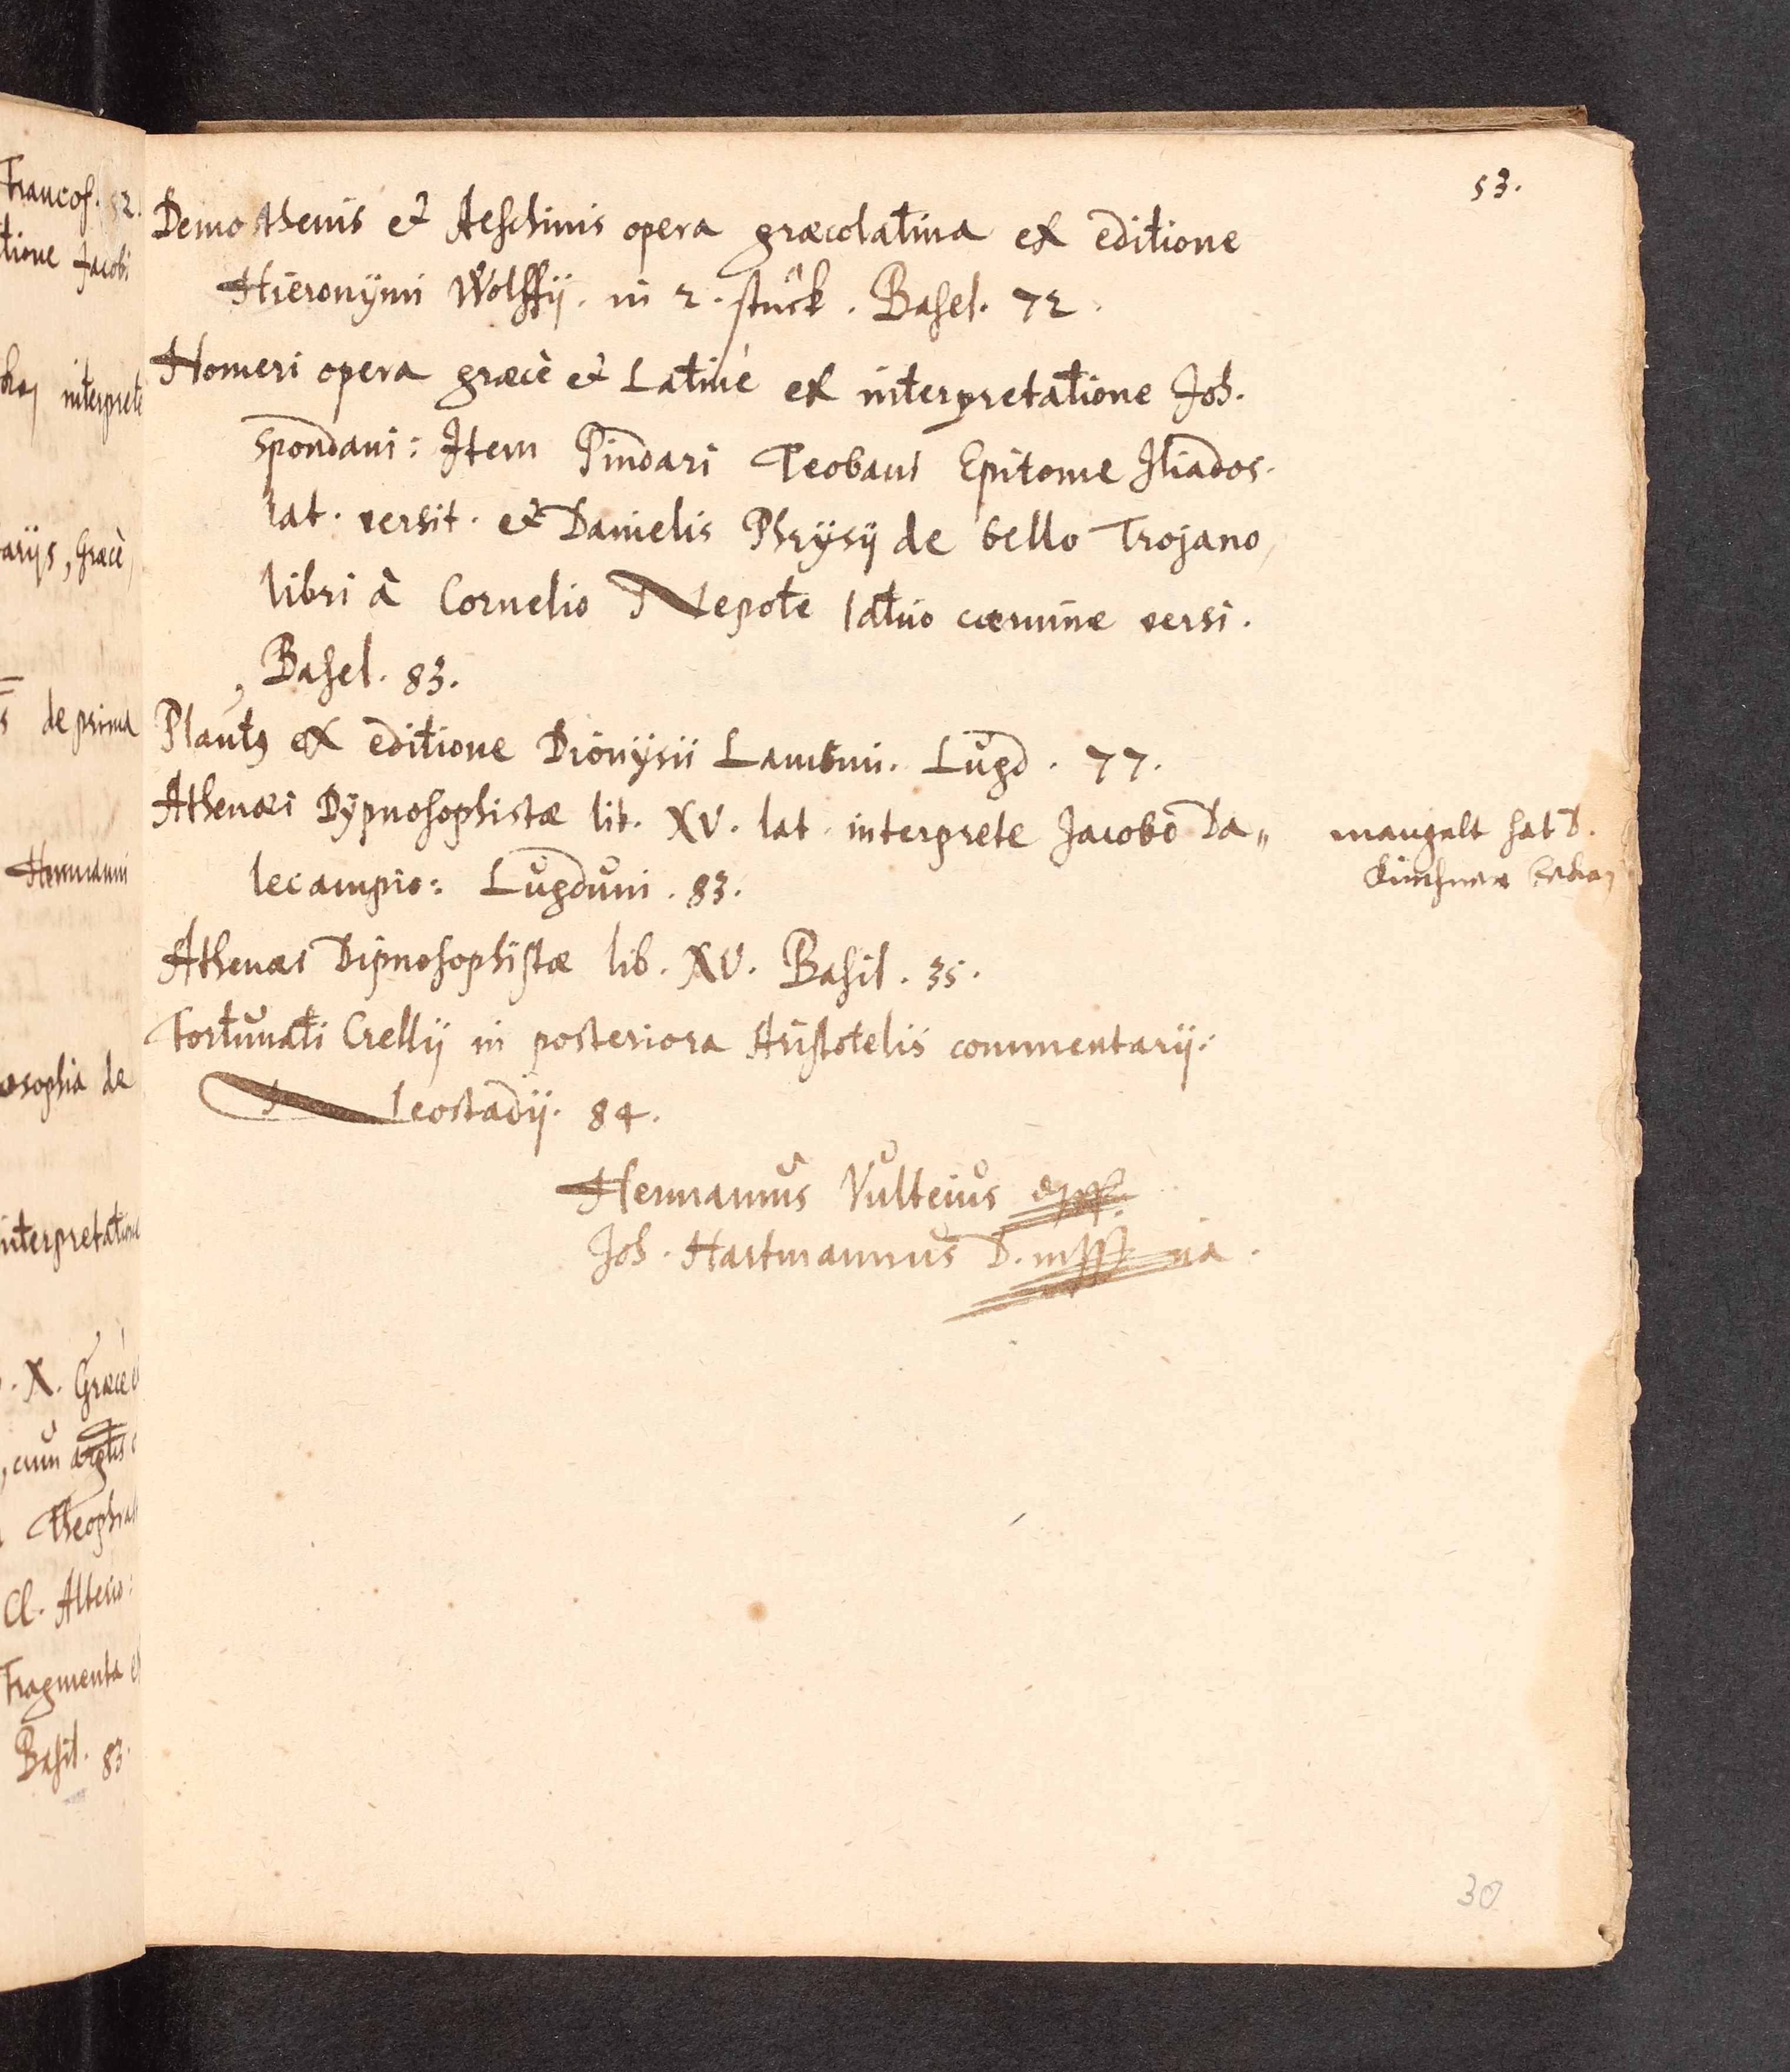 53.
Demosthenis et Aeschinis opera græcolatina ex editione
Hieronymi Wolffij. in 2. stück. Basel. 72.
Homeri opera græcè et Latinè ex interpretatione Joh.
Spondani: Item Pindari Teobani Epitome Iliados.
lat. versit. et Danielis Phrysij de bello Trojano,
libri à Cornelio Nepote latino carmine versi.
Basel. 83.
Plautus ex editione Dionysii Lambini. Lugd. 77.
Athenæi Dypnosophistæ lib. XV. lat. interprete Jacobo Da„
lecampio: Lugduni. 83.
mangelt hat D.
Kirchner
Athenæi Dipnosophistæ lib. XV. Basil. 35.
Fortunati Crellij in posteriora Aristotelis commentarij:
Neostadij. 84.
Hermannus Vulteius
Joh. Hartmannus D. mppria.
30
Francof. 52.
tione Jacobi
interprete
arijs, Græcè,
s de prima
Hermanni
osophia de
interpretatione
. X. Græcè
, cum
Theophras
Cl. Alterio:
Fragmenta
Basil. 83.